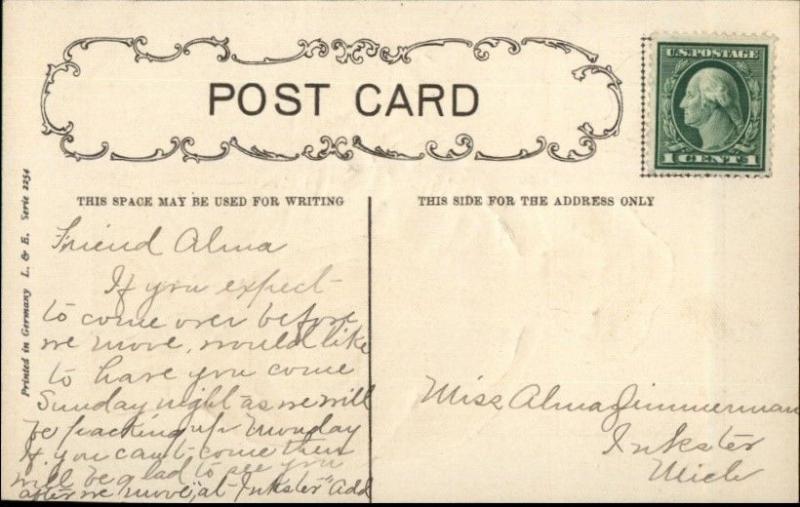 POST CARD
U.S. POSTAGE
1 CENTS 1
THIS SPACE MAY BE USED FOR WRITING
THIS SIDE FOR THE ADDRESS ONLY
Printed in Germany L. & E. Serie 2254
Friend Alma
If you expect
to come over before
we move, would like
to have you come
Sunday night as we will
be packing up Monday
If you can't come then
will be glad to see you
after we move, "at Inkster" Add
Miss Alma Zimmerman
Inkster
Mich